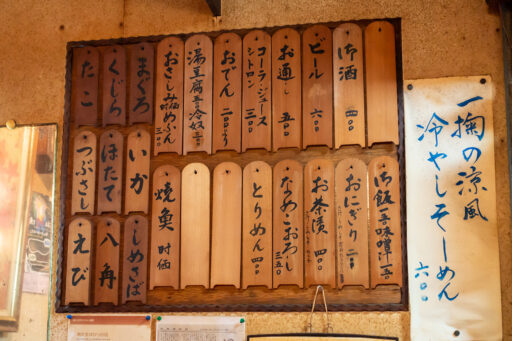 御酒 四〇〇
ビール 六〇〇
お通し 五〇〇
コーラ・ジュース
シトロン 三〇〇
おでん 二〇〇より
湯豆腐 冷奴 三〇〇
おさしみ 時価
めふん 三〇〇
まぐろ
くじら
たこ
御飯 味噌汁
おにぎり 二〇〇
お茶漬 四〇〇
なめこおろし 三五〇
とりめん 四〇〇
焼魚 時価
いか
ほたて
つぶさし
しめさば
八角
えび
一掬の涼風
冷やしそーめん
六〇〇